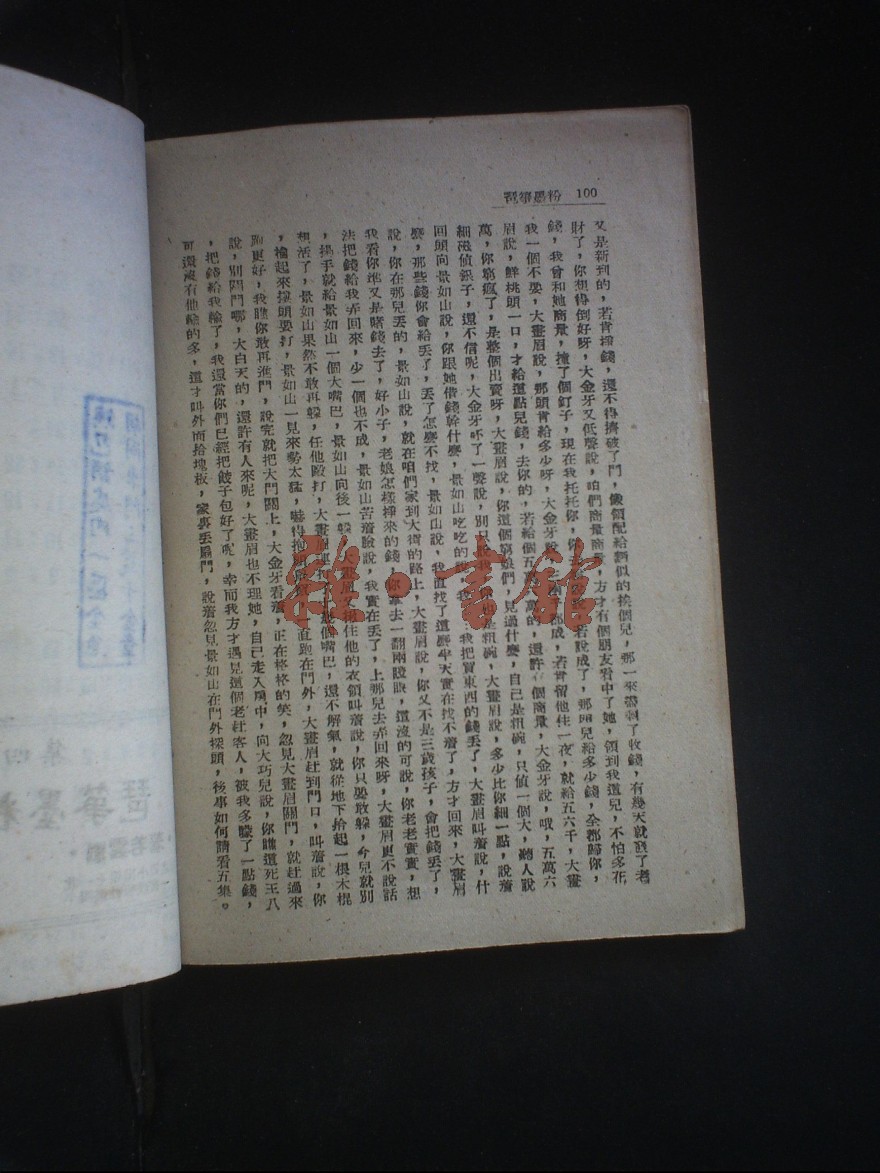 粉墨箏琶 100
又是新到的，若肯撈錢，還不得擠破了門，像領配給麵似的挨個兒，那一來帶剩了收錢，有幾天就發了老
財了，你想得倒好呀，大金牙又低聲說，咱們商量商量，方才有個朋友看中了她，領到我這兒，不怕多花
錢，我曾和她商量，撞了個釘子，現在我托托你，你 若說成了，那頭兒給多少錢，全都歸你，
我一個不要，大畫眉說，那頭肯給多少呀，大金牙說， 都成，若肯留他住一夜，就給五六千，大畫
眉說，鮮桃頭一口，才給這點兒錢，去你的，若給個五 萬的，還許 個商量，大金牙說，哦，五萬六
萬，你窮瘋了，是整個出賣呀，大畫眉說，你這個窮娘們，見過什麼，自己是粗碗，只值一個大，聽人說
細磁值銀子，還不信呢，大金牙呸了一聲說，別只說我，你也是粗碗，大畫眉說，多少比你細一點，說着
回頭向景如山說，你跟她借錢幹什麼，景如山吃吃的說，我 我把買東西的錢丟了，大畫眉叫着說，什
麼，那些錢你會給丟了，丟了怎麼不找，景如山說，我直找了這麼半天實在找不着了，方才回來，大畫眉
說，你在那兒丟的，景如山說，就在咱們家到大街的路上，大畫眉說，你又不是三歲孩子，會把錢丟了，
我看你準又是賭錢去了，好小子，老娘怎樣掙來的錢，你拿去一翻兩瞪眼，還沒的可說，你老老實實，想
法把錢給我弄回來，少一個也不成，景如山苦着臉說，我實在丟了，上那兒去弄回來呀，大畫眉更不說話
，揚手就給景如山一個大嘴巴，景如山向後一躲，大畫眉又揪住他的衣領叫着說，你只要敢躲，今兒就別
想活了，景如山果然不敢再躲，任他毆打，大畫眉連打了 個嘴巴，還不解氣，就從地下拾起一根木棍
，掄起來摟頭要打，景如山一見來勢太猛，嚇得抱頭 一直跑在門外，大畫眉赶到門口，叫着說，你
跑更好，我瞧你敢再進門，說完就把大門關上，大金牙看着，正在格格的笑，忽見大畫眉關門，就赶過來
說，別關門哪，大白天的，還許有人來呢，大畫眉也不理她，自己走入房中，向大巧兒說，你瞧這死王八
，把錢給我輸了，我還當你們已經把餃子包好了呢，幸而我方才遇見這個老赶客人，被我多矇了一點錢，
可還沒有他輸的多，這才叫外而拾塊板，家裏丟扇門，說着忽見景如山在門外探頭，後事如何請看五集。
雜·書館
集四